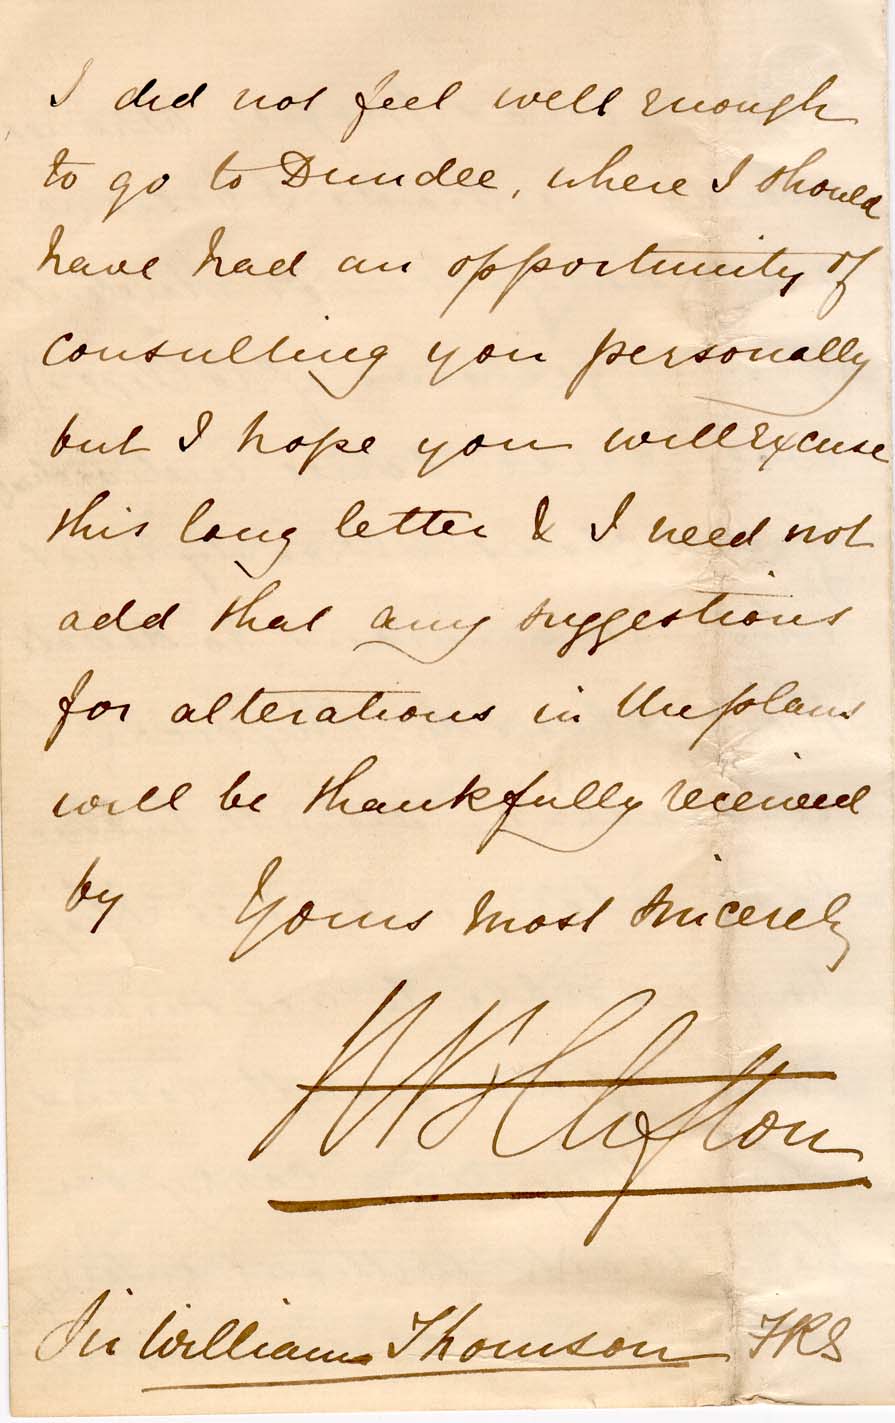 I did not feel well enough
to go to Dundee, where I should
have had an opportunity of
consulting you personally
but I hope you will excuse
this long letter & I need not
add that any suggestions
for alterations in the plans
will be thankfully received
by Yours most sincerely
R B Clifton
Sir William Thomson FRS